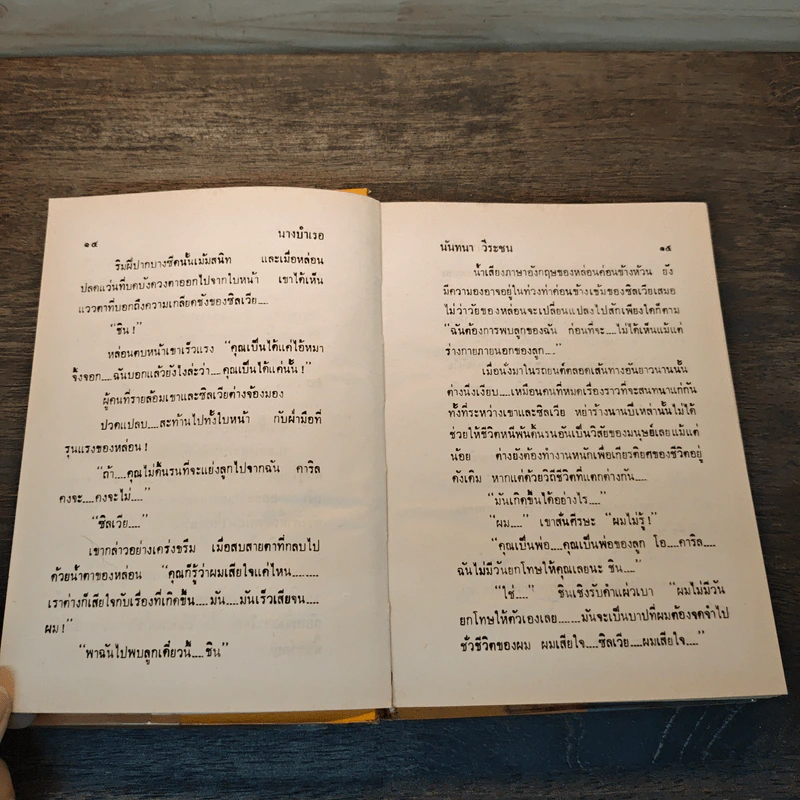 ๑๔ นางบำเรอ
ริมฝีปากบางซีดนั้นเม้มสนิท และเมื่อหล่อน
ปลดแว่นที่บดบังดวงตาออกไปจากใบหน้า เขาได้เห็น
แววตาที่บอกถึงความเกลียดชังของซิลเวีย....
“ชิน!”
หล่อนตบหน้าเขาเร็วแรง “คุณเป็นได้แค่ไอ้หมา
จิ้งจอก....ฉันบอกแล้วยังไงล่ะว่า....คุณเป็นได้แค่นั้น!”
ผู้คนที่รายล้อมเขาและซิลเวียต่างจ้องมอง
ปวดแปลบ....สะท้านไปทั้งใบหน้า กับฝ่ามือที่
รุนแรงของหล่อน!
“ถ้า....คุณไม่ดิ้นรนที่จะแย่งลูกไปจากฉัน คาริล
คงจะ....คงจะไม่....”
“ซิลเวีย....”
เขากล่าวอย่างเคร่งขรึม เมื่อสบสายตาที่กลบไป
ด้วยน้ำตาของหล่อน “คุณก็รู้ว่าผมเสียใจแค่ไหน........
เราต่างก็เสียใจกับเรื่องที่เกิดขึ้น....มัน....มันเร็วเสียจน....
ผม!”
“พาฉันไปพบลูกเดี๋ยวนี้....ชิน”
นันทนา วีระชน ๑๕
น้ำเสียงภาษาอังกฤษของหล่อนค่อนข้างห้วน ยัง
มีความองอาจอยู่ในท่วงทำค่อนข้างเข้มของซิลเวียเสมอ
ไม่ว่าวัยของหล่อนจะเปลี่ยนแปลงไปสักเพียงใดก็ตาม
“ฉันต้องการพบลูกของฉัน ก่อนที่จะ....ไม่ได้เห็นแม้แต่
ร่างกายภายนอกของลูก....”
เมื่อนั่งมาในรถยนต์ตลอดเส้นทางอันยาวนานนั้น
ต่างนิ่งเงียบ....เหมือนคนที่หมดเรื่องราวที่จะสนทนาแก่กัน
ทั้งที่ระหว่างเขาและซิลเวีย หย่าร้างนานปีเหล่านั้นไม่ได้
ช่วยให้ชีวิตหนีพ้นดิ้นรนอันเป็นวิสัยของมนุษย์เลยแม้แต่
น้อย ต่างยังต้องทำงานหนักเพื่อเกียรติยศของชีวิตอยู่
ดังเดิม หากแต่ด้วยวิถีชีวิตที่แตกต่างกัน....
“มันเกิดขึ้นได้อย่างไร....”
“ผม....” เขาสั่นศีรษะ “ผมไม่รู้!”
“คุณเป็นพ่อ....คุณเป็นพ่อของลูก โอ....คาริล....
ฉันไม่มีวันยกโทษให้คุณเลยนะ ชิน....”
“ใช่....” ชินเชิงรับคำแผ่วเบา “ผมไม่มีวัน
ยกโทษให้ตัวเองเลย........มันจะเป็นบาปที่ผมต้องจดจำไป
ชั่วชีวิตของผม ผมเสียใจ....ซิลเวีย....ผมเสียใจ....”